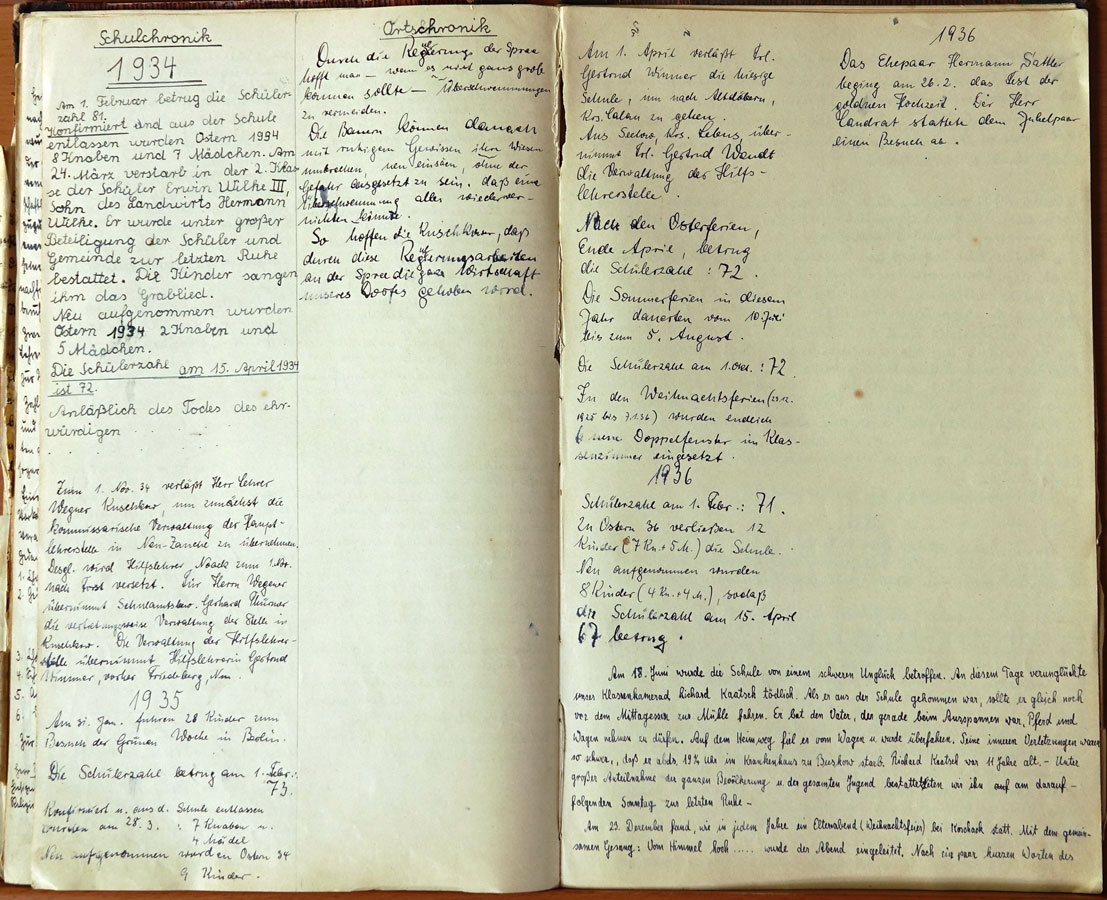 Schulchronik
1934
Am 1. Februar betrug die Schüler-
zahl 81.
Konfirmiert und aus der Schule
entlassen wurden Ostern 1934
8 Knaben und 7 Mädchen. Am
24. März verstarb in der 2. Klas-
se der Schüler Erwin Wilke III,
Sohn des Landwirts Hermann
Wilke. Er wurde unter großer
Beteiligung der Schüler und
Gemeinde zur letzten Ruhe
bestattet. Die Kinder sangen
ihm das Grablied.
Neu aufgenommen wurden
Ostern 1934 2 Knaben und
5 Mädchen.
Die Schülerzahl am 15. April 1934
ist 72.
Anläßlich des Todes des ehr-
würdigen
Zum 1. Nov. 34 verläßt Herr Lehrer
Wegner Kuschkow, um zunächst die
kommissarische Verwaltung der Haupt-
lehrerstelle in Neu-Zauche zu übernehmen.
Desgl. wird Hilfslehrer Noack zum 1. Nov.
nach Forst versetzt. Für Herrn Wegener
übernimmt Schulamtsbew. Gerhard Thürner
die vertretungsweise Verwaltung der Stelle in
Kuschkow. Die Verwaltung der Hilfslehrer-
stelle übernimmt Hilfslehrerin Gertrud
Winner, vorher Friedeberg, Nm.
1935
Am 31. Jan. fuhren 28 Kinder zum
Besuch der Grünen Woche in Berlin.
Die Schülerzahl betrug am 1. Febr.:
73.
Konfirmiert u. aus d. Schule entlassen
wurden am 28.3. : 7 Knaben u.
4 Mädel
Neu aufgenommen worden Ostern 34
9 Kinder.
Ortschronik
Durch die Regulierung der Spree
hofft man – wenn es nicht ganz grob
kommen sollte – Überschwemmungen
zu vermeiden.
Die Bauern können danach
mit ruhigem Gewissen ihre Wiesen
umbrechen, neu einsäen, ohne der
Gefahr ausgesetzt zu sein, daß eine
Überschwemmung alles wieder ver-
nichten könnte.
So hoffen die Kuschkower, daß
durch diese Regulierungsarbeiten
an der Spree die ganze Wirtschaft
unseres Dorfes gehoben wird.
Am 1. April verläßt Frl.
Gertrud Winner die hiesige
Schule, um nach Altdöbern,
Krs. Calau zu gehen.
Aus Seelow, Krs. Lebus, über-
nimmt Frl. Gertrud Wendt
die Verwaltung der Hilfs-
lehrerstelle.
Nach den Osterferien,
Ende April, betrug
die Schülerzahl : 72.
Die Sommerferien in diesem
Jahr dauerten vom 10. Juli
bis zum 5. August.
Die Schülerzahl am 1. Okt. : 72
In den Weihnachtsferien (23.12.
1935 bis 7.1.36) wurden endlich
6 neue Doppelfenster im Klas-
senzimmer eingesetzt.
1936
Schülerzahl am 1. Febr.: 71.
Zu Ostern 36 verließen 12
Kinder (7 Kn. + 5 M.) die Schule.
Neu aufgenommen wurden
8 Kinder (4 Kn. + 4 M.), sodaß
die Schülerzahl am 15. April
67 betrug.
1936
Das Ehepaar Hermann Sattler
beging am 26.2. das Fest der
goldnen Hochzeit. Der Herr
Landrat stattete dem Jubelpaar
einen Besuch ab.
Am 18. Juni wurde die Schule von einem schweren Unglück betroffen. An diesem Tage verunglückte
unser Klassenkamerad Richard Kaatsch tödlich. Als er aus der Schule gekommen war, sollte er gleich noch
vor dem Mittagessen zur Mühle fahren. Er bat den Vater, der gerade beim Ausspannen war, Pferd und
Wagen nehmen zu dürfen. Auf dem Heimweg fiel er vom Wagen u. wurde überfahren. Seine inneren Verletzungen waren
so schwer, daß er abds 19¼ Uhr im Krankenhaus zu Beeskow starb. Richard Kaatsch war 11 Jahre alt. – Unter
großer Anteilnahme der ganzen Bevölkerung u. der gesamten Jugend bestatteten wir ihn am darauf-
folgenden Sonntag zur letzten Ruhe –
Am 23. Dezember fand, wie in jedem Jahre ein Elternabend (Weihnachtsfeier) bei Koschack statt. Mit dem gemein-
samen Gesang: Vom Himmel hoch ..... wurde der Abend eingeleitet. Nach ein paar kurzen Worten des